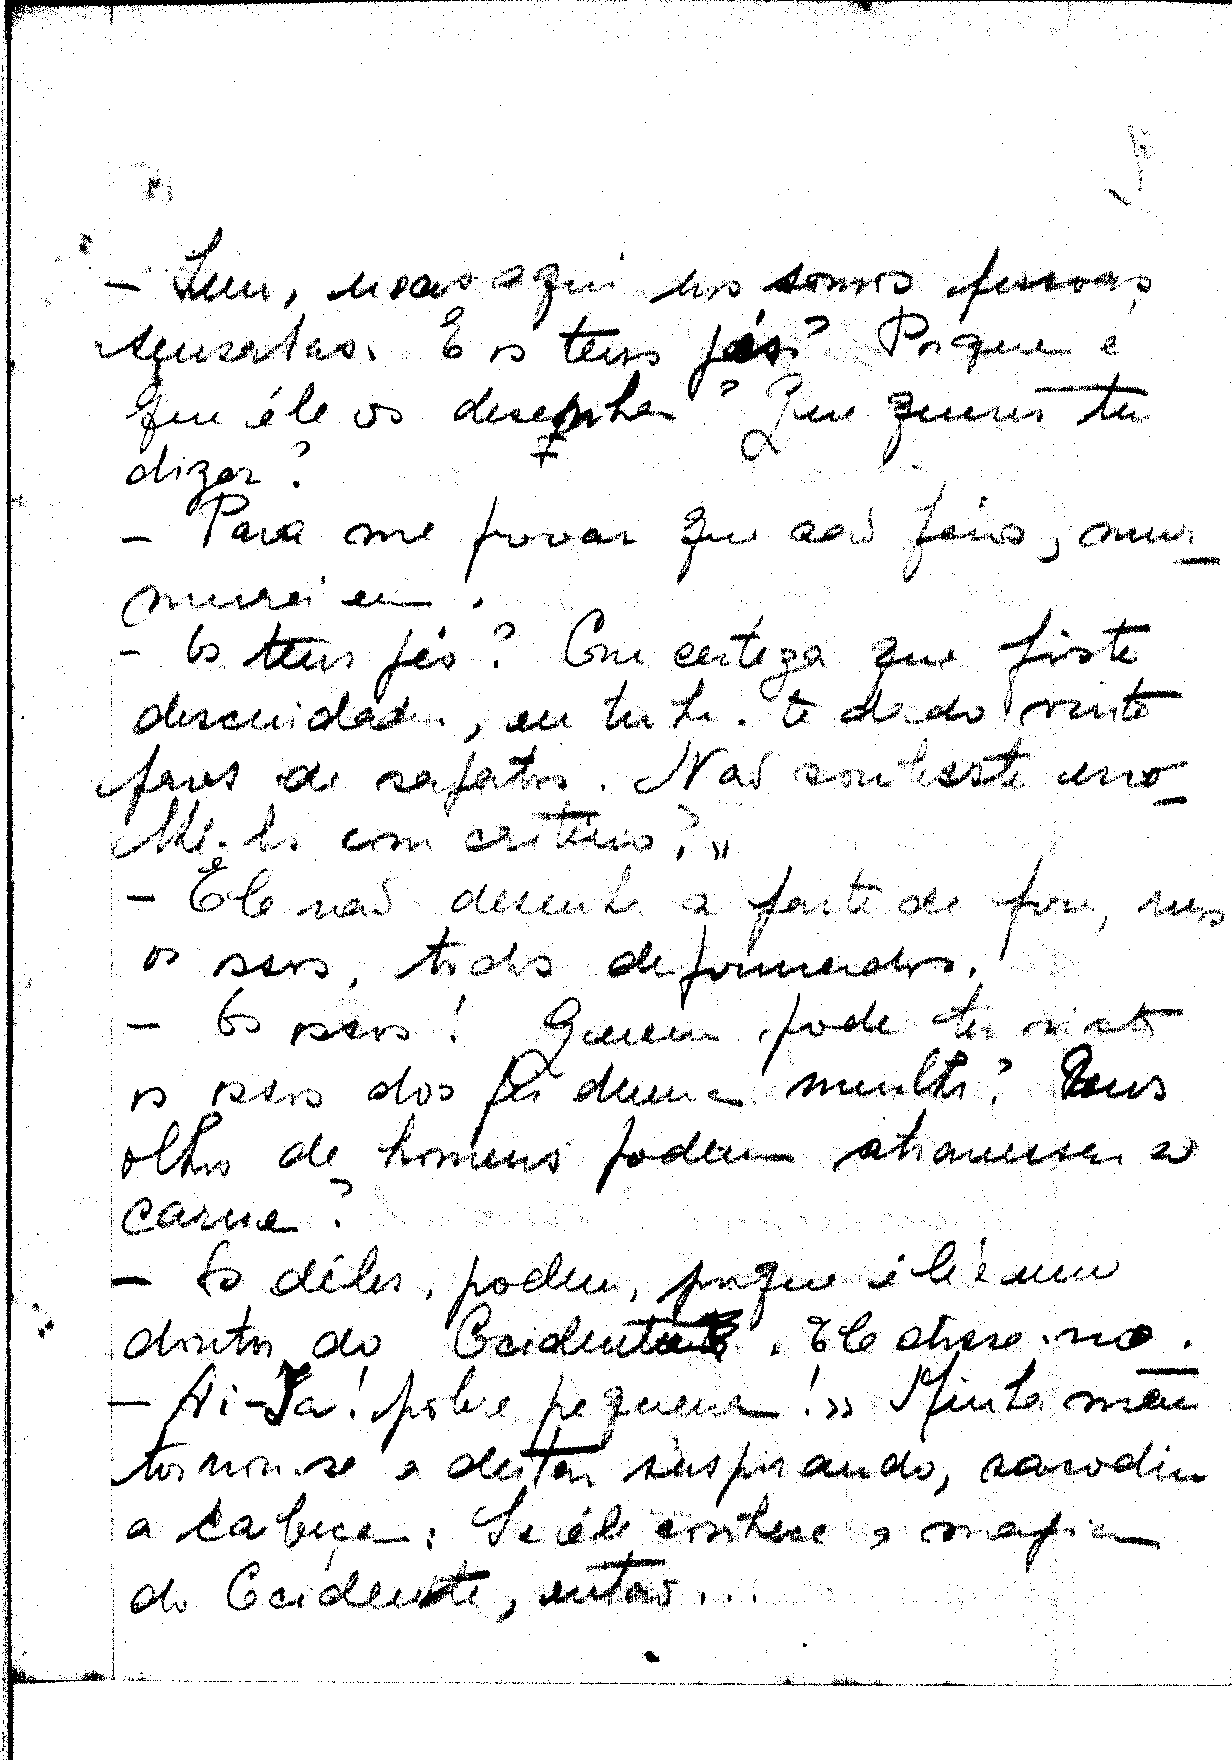 — Sim, mas aqui nós somos pessoas
sensatas. E os teus pés? Porque é
que êle os desenha? Que queres tu
dizer?
— Para me provar que são feios, mur-
murei eu.
— Os teus pés? Com certeza que foste
descuidada, eu tinha-te dado vinte
pares de sapatos. Não soubeste esco-
lhê-los com critério?»
— Êle não desenha a parte de fora, mas
os ossos, todos deformados.
— Os ossos! Quem pode ter visto
os ossos dos pés duma mulher? Teus
olhos de homens podem atravessar a
carne?
— Os dêles, podem, porque êle é um
doutor do Ocidente. Ele disse-mo.
— Ai-Ya! pobre pequena!» Minha mãe
tornou-se a deitar suspirando, sacudiu
a cabeça: Se êle conhece a magia
do Ocidente, então...